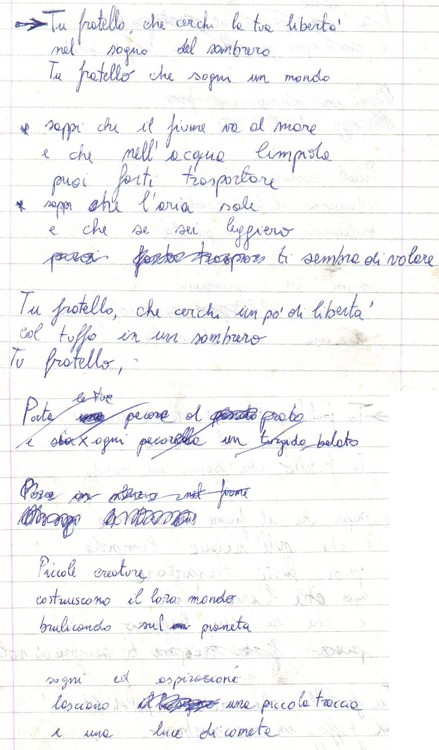 Tu fratello, che cerchi la tua libertà
nel sogno del sombrero
Tu fratello che sogni un mondo
* sappi che il fiume va al mare
e che nell'acqua limpida
puoi farti trasportare
* sappi che l'aria sale
e che se sei leggiero
puoi farti ti sembra di volare
Tu fratello, che cerchi un pò di libertà
col tuffo in un sombrero
Tu fratello,
le tue
Porta pecore al prato
e x ogni pecorella un belato
fiume
Piccole creature
costruiscono il loro mondo
brulicando sul pianeta
sogni ed aspirazioni
lasciano una piccola traccia
e una luce di cometa